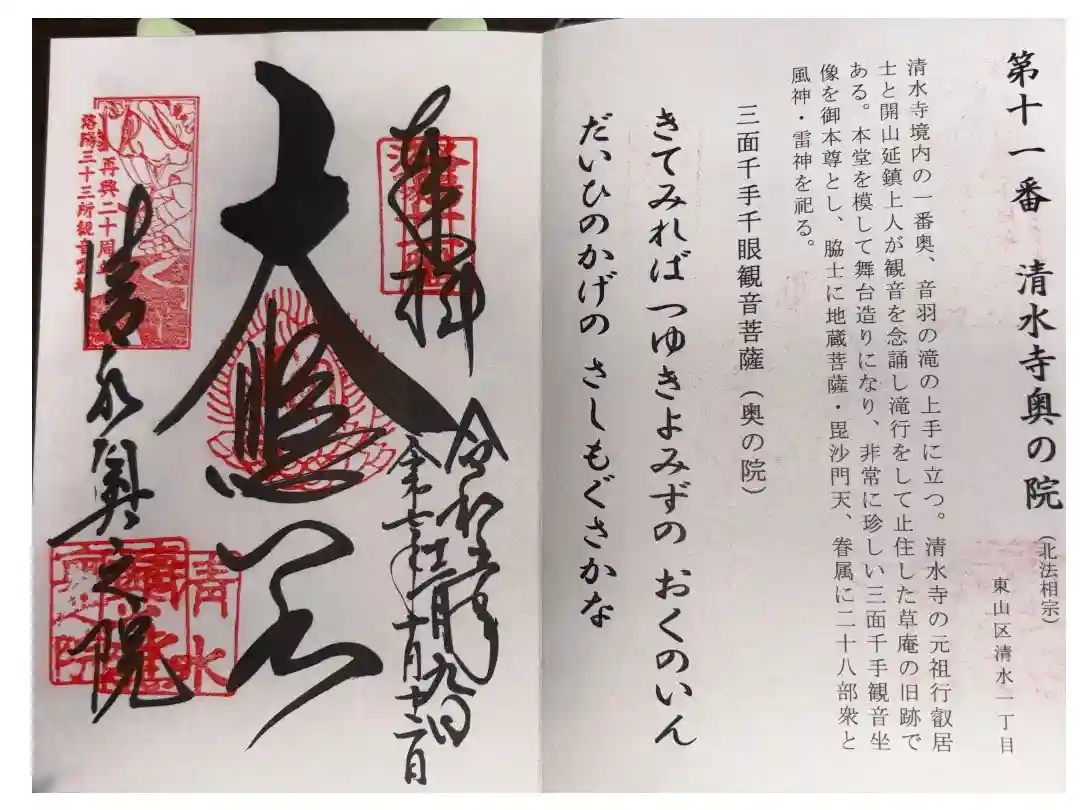 第十一番 清水寺奥の院 (北法相宗)
東山区清水一丁目
清水寺境内の一番奥、音羽の滝の上手に立つ。清水寺の元祖行叡居
士と開山延鎮上人が観音を念誦し滝行をして止住した草庵の旧跡で
ある。本堂を模して舞台造りになり、非常に珍しい三面千手観音坐
像を御本尊とし、脇士に地蔵菩薩・毘沙門天、眷属に二十八部衆と
風神・雷神を祀る。
三面千手千眼観音菩薩(奥の院)
きてみれば つゆきよみずの おくのいん
だいひのかげの さしもぐさかな
奉拝
大悲閣
清水奥之院
再興二十周
洛陽三十三所観音
清水